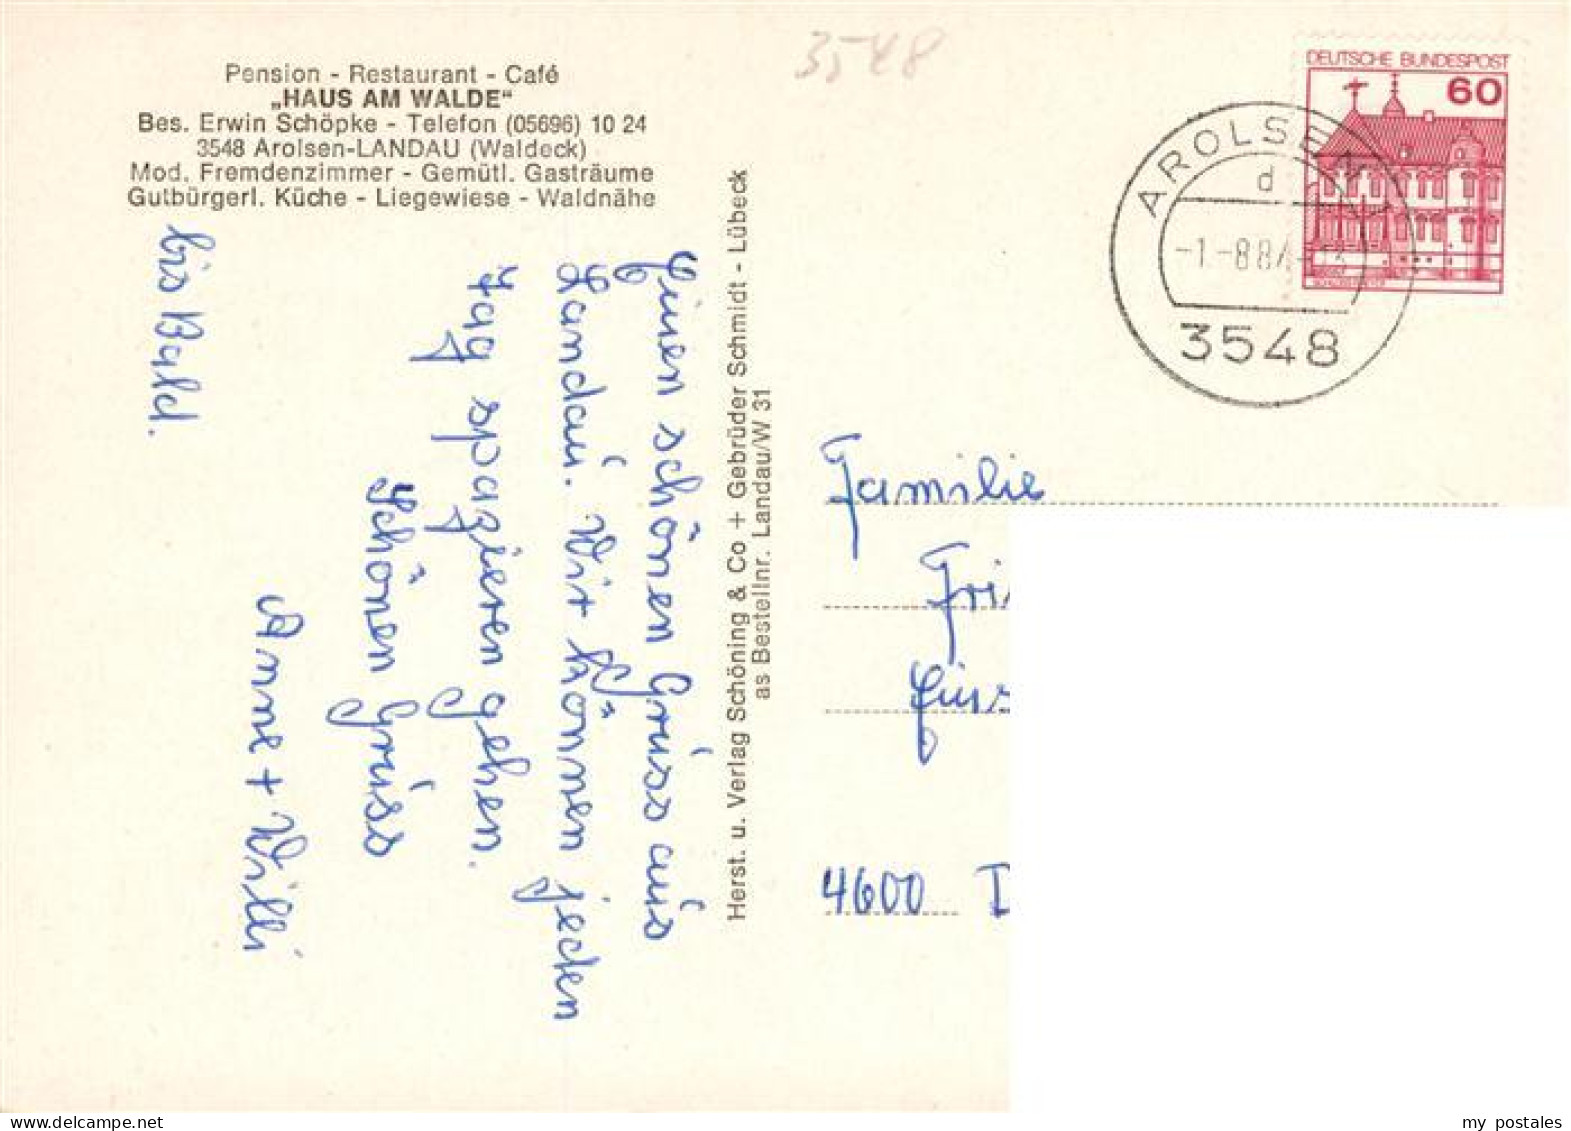 Pension - Restaurant - Café
„HAUS AM WALDE"
Bes. Erwin Schöpke - Telefon (05696) 10 24
3548 Arolsen-LANDAU (Waldeck)
Mod. Fremdenzimmer - Gemütl. Gasträume
Gutbürgerl. Küche - Liegewiese - Waldnähe
Einen schönen Grüss aus
Landau. Wir können jeden
Tag spazieren gehen.
Schönen Grüss
Anne + Willi
bis Bald.
Herst. u. Verlag Schöning & Co + Gebrüder Schmidt - Lübeck
as Bestellnr. Landau/W 31
3548
DEUTSCHE BUNDESPOST
60
AROLSEN 1
d
3548
Familie
4600 D
my postales